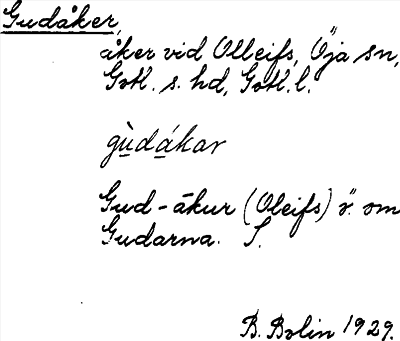 Gudåker,
åker vid Olleifs, Öja sn,
Gotl. s. hd, Gotl. l.
gùdákar
Gud-åkur (Oleifs) ö. om
Gudarna. S.
B. Bolin 1929.